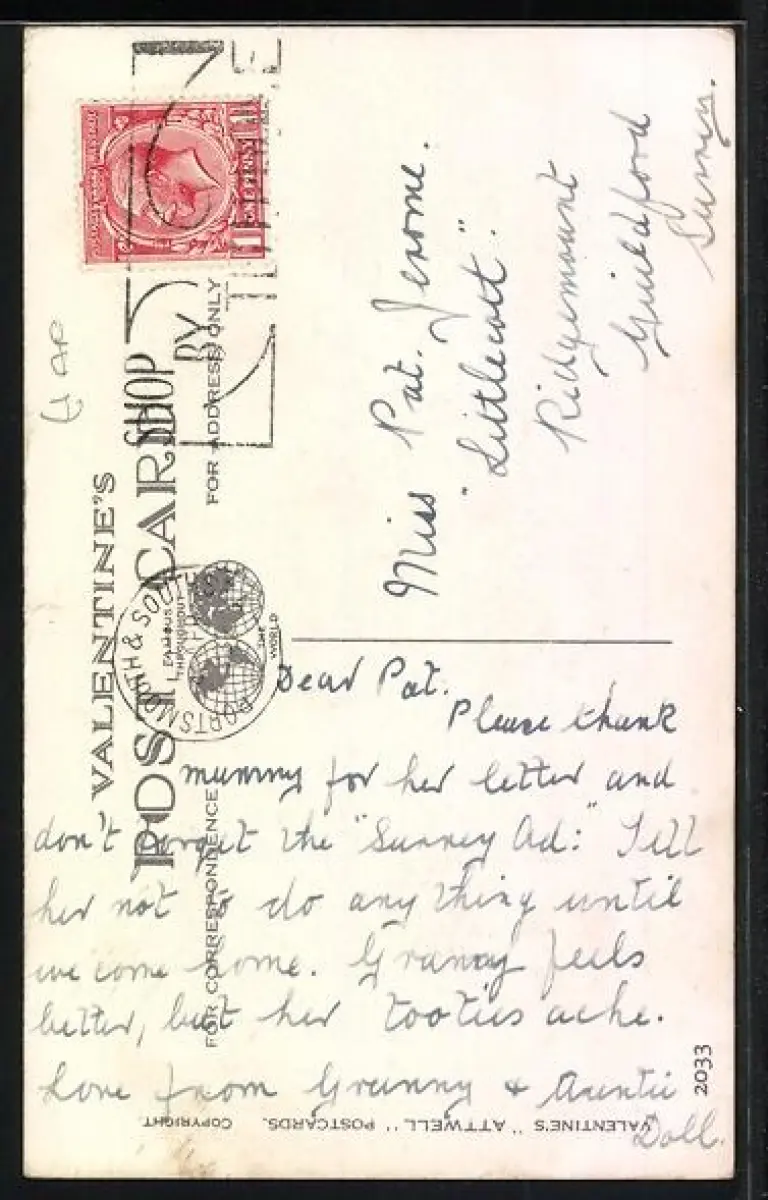 VALENTINE'S
POST CARD
FAMOUS
THROUGHOUT
THE
WORLD
FOR CORRESPONDENCE
FOR ADDRESS ONLY
ONE PENNY
SHOP
BY
PORTSMOUTH & SOUTHSEA
Miss Pat. Jerome.
"Littlecott".
Ridgemount
Guildford
Surrey.
Dear Pat.
Please thank
mummy for her letter and
don't forget the "Surrey Ad:" Tell
her not to do any thing until
we come home. Granny feels
better, but her tooties ache.
Love from Granny & Auntie
Doll.
VALENTINE'S "ATTWELL" POSTCARDS. COPYRIGHT.
2033